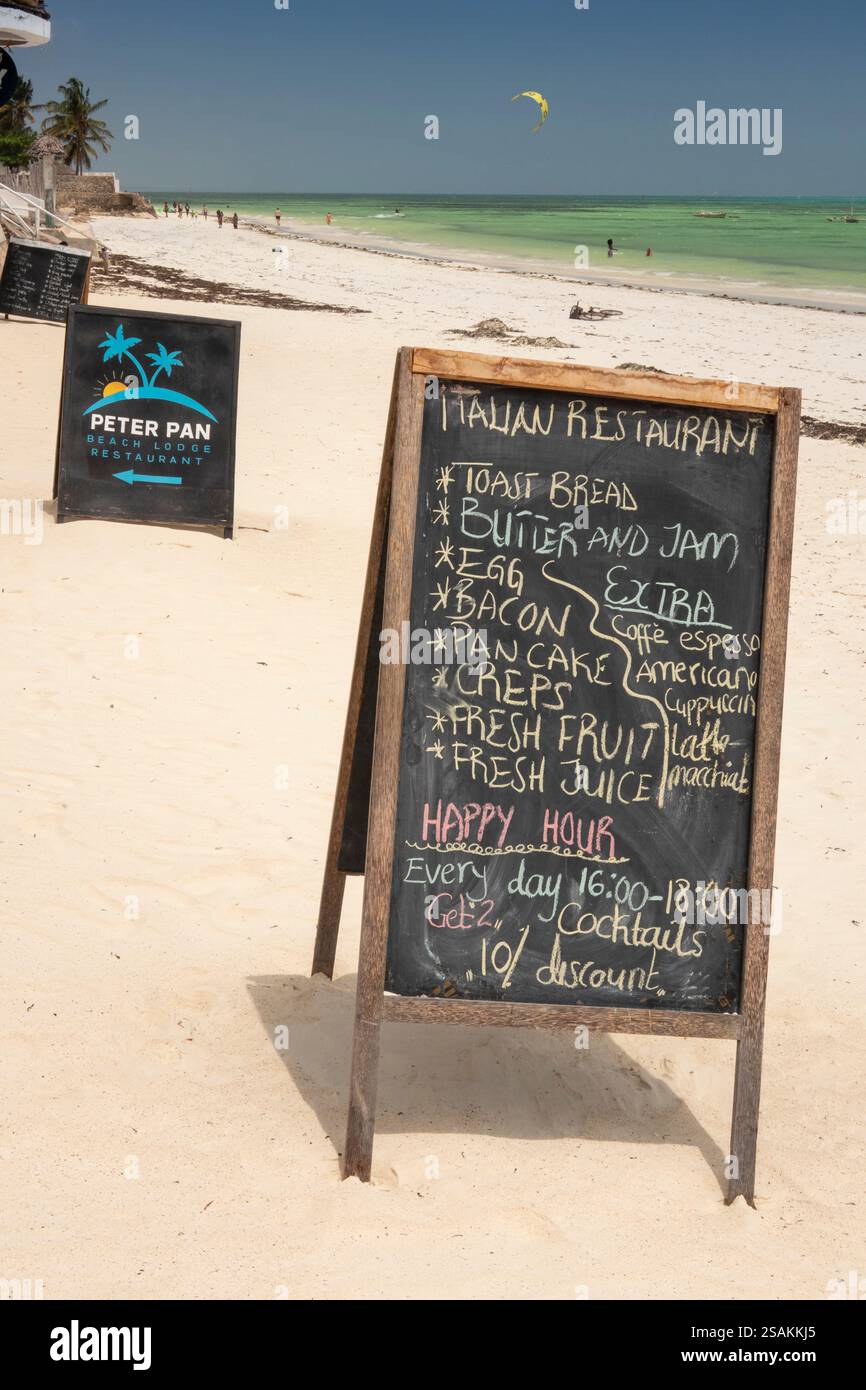 PETER PAN
BEACH LODGE
RESTAURANT
ITALIAN RESTAURANT
* TOAST BREAD
* BUTTER AND JAM
* EGG
* BACON
* PANCAKE
* CREPS
* FRESH FRUIT
* FRESH JUICE
EXTRA
Coffè espesso
Americano
Cuppuccin
Latte
macchiat
HAPPY HOUR
Every day 16:00-18:00
Get 2 Cocktails
"10/ discount"
alamy
Image ID: 2SAKKJ5
www.alamy.com